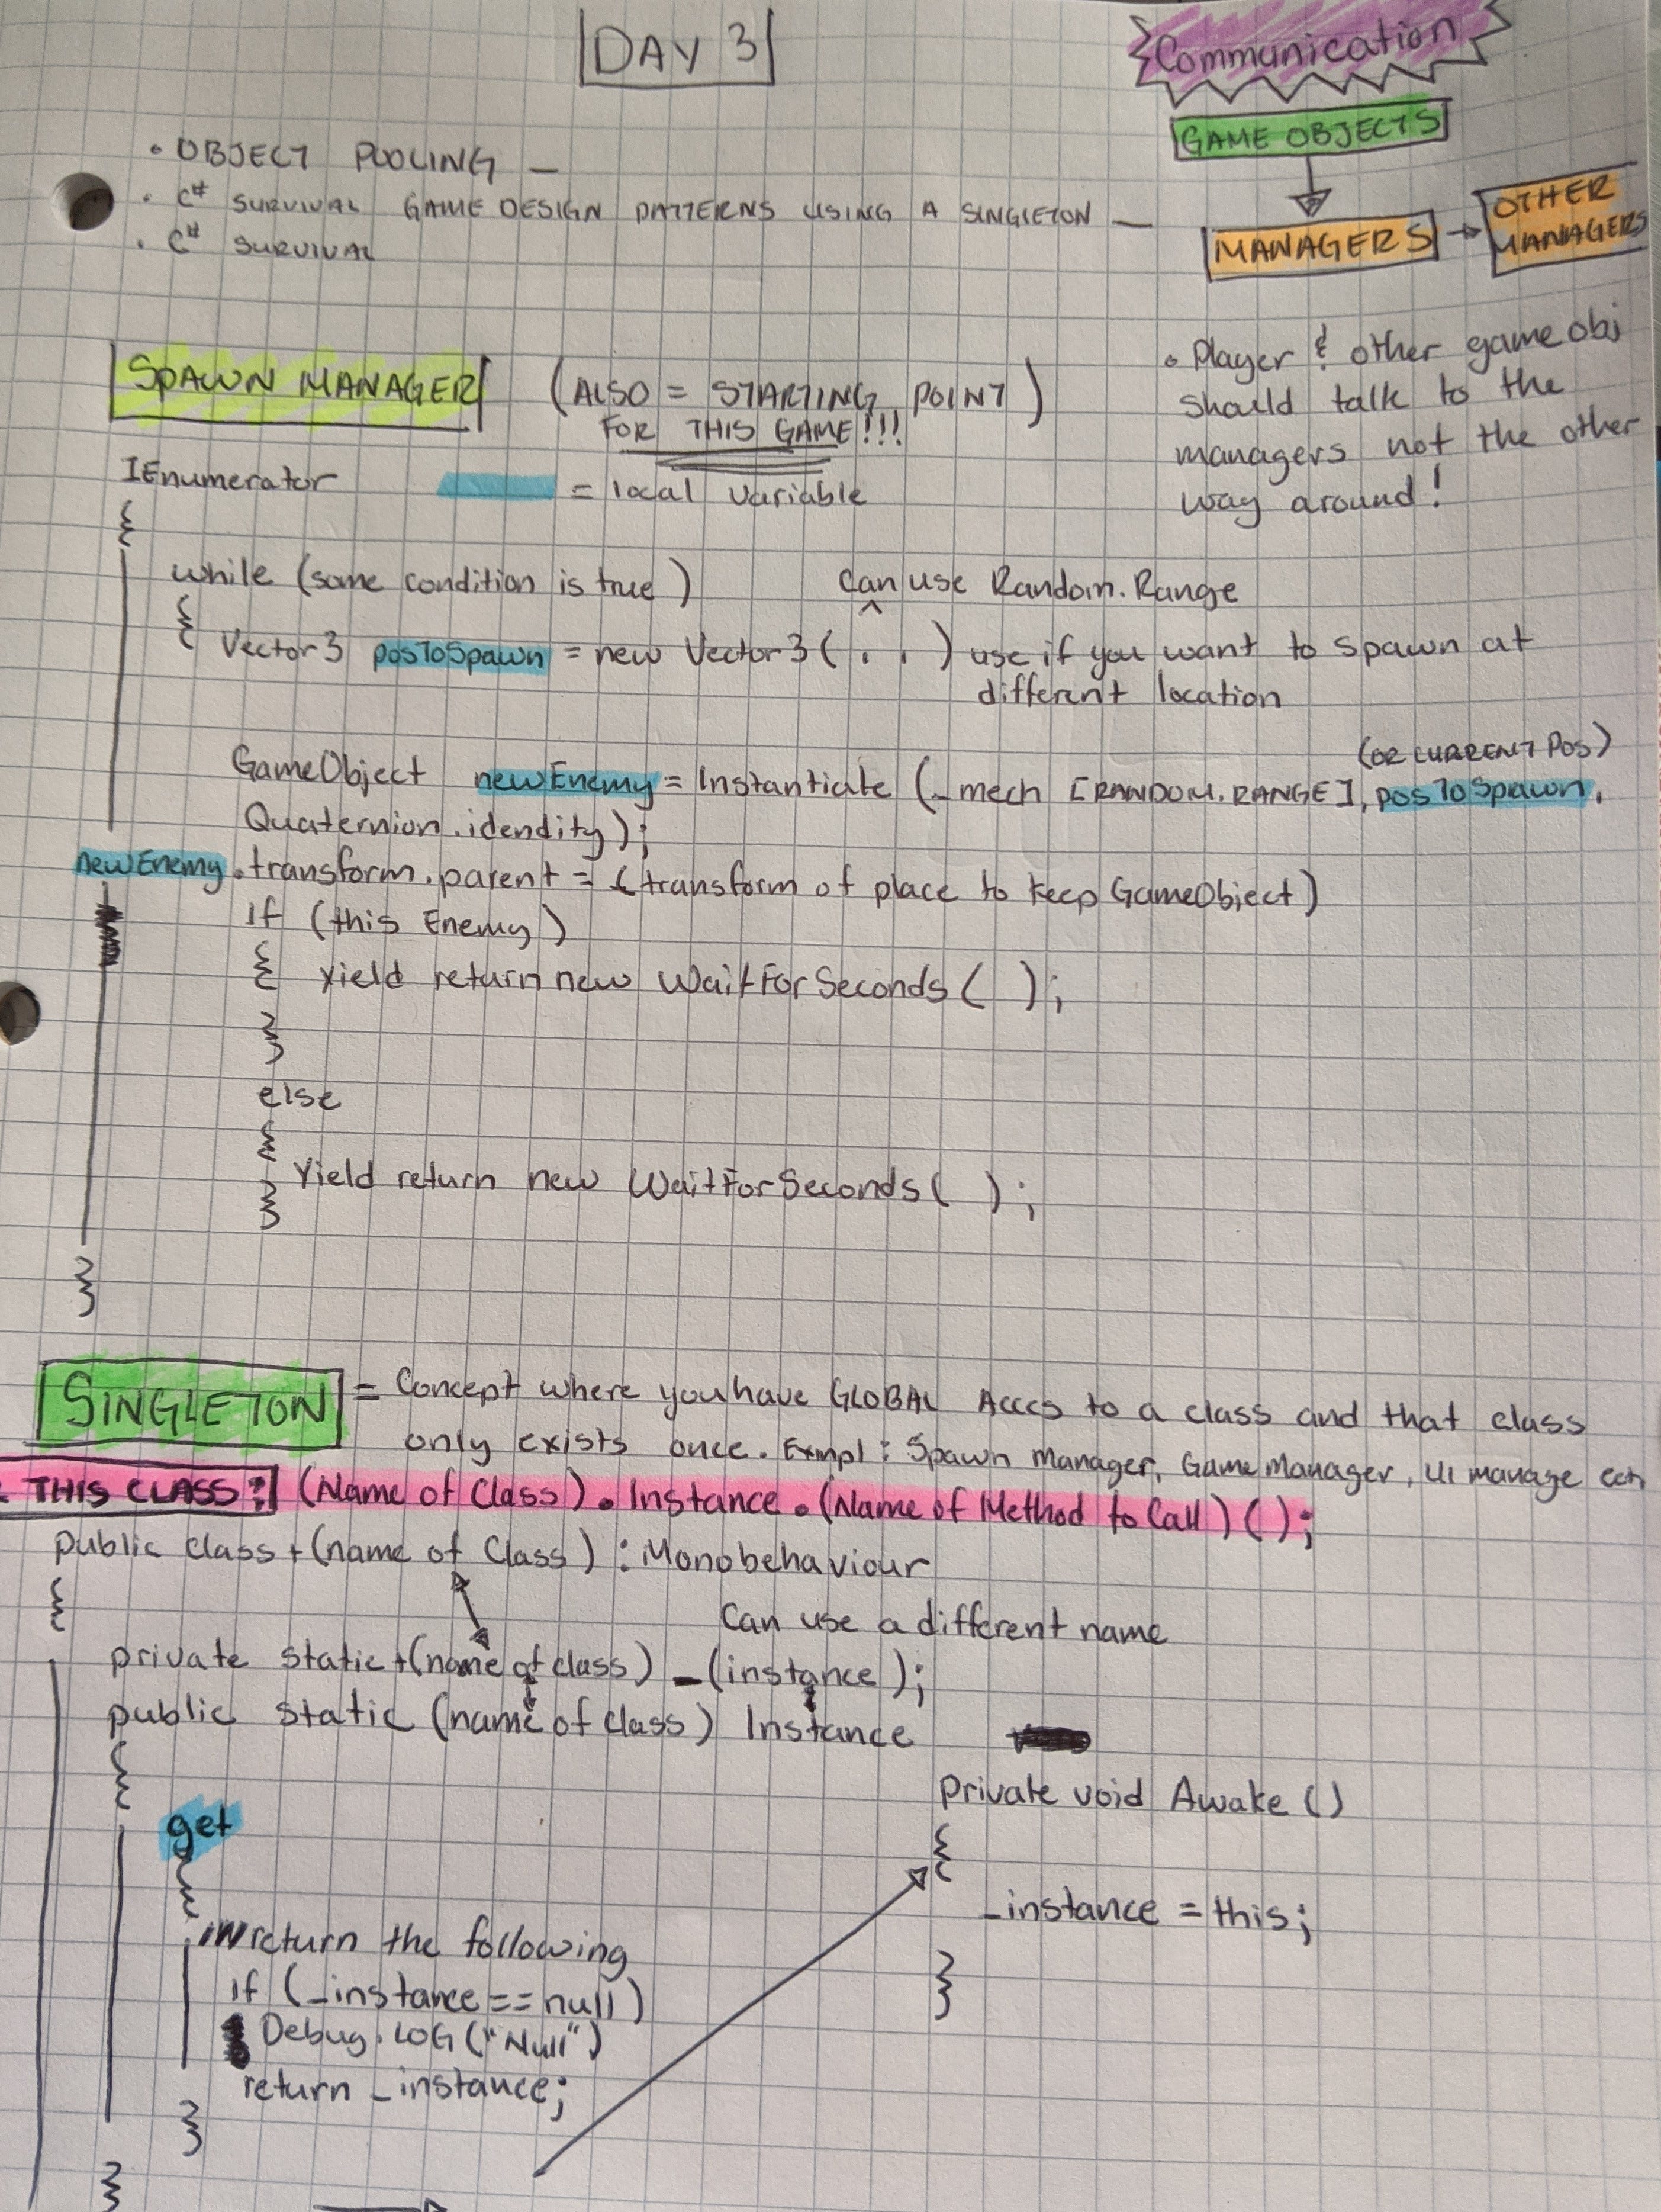 DAY 3
Communication
GAME OBJECTS
MANAGERS
OTHER
MANAGERS
• OBJECT POOLING —
• C# SURVIVAL GAME DESIGN PATTERNS USING A SINGLETON —
• C# SURVIVAL
• Player & other game obj
should talk to the
managers not the other
way around!
SPAWN MANAGER (ALSO = STARTING POINT)
FOR THIS GAME!!!
IEnumerator = local variable
{
while (some condition is true) can use Random.Range
{
Vector3 posToSpawn = new Vector3( , , ) use if you want to spawn at
different location
(OR CURRENT POS)
GameObject newEnemy = Instantiate (_mech [RANDOM.RANGE], posToSpawn,
Quaternion.idendity);
newEnemy.transform.parent = (transform of place to keep GameObject)
if (this Enemy)
{ yield return new WaitForSeconds( );
}
else
{
Yield return new WaitForSeconds( );
}
}
SINGLETON = Concept where you have GLOBAL Acccs to a class and that class
only exists once. Exmpl: Spawn Manager, Game Manager, UI manage
THIS CLASS: (Name of Class).Instance.(Name of Method to Call)();
public class + (name of Class) : Monobehaviour
{
Can use a different name
private static + (name of class) _(instance);
public static (name of class) Instance
{
get
{
return the following
if (_instance == null)
Debug.LOG("Null")
return _instance;
}
}
Private void Awake ()
{
_instance = this;
}